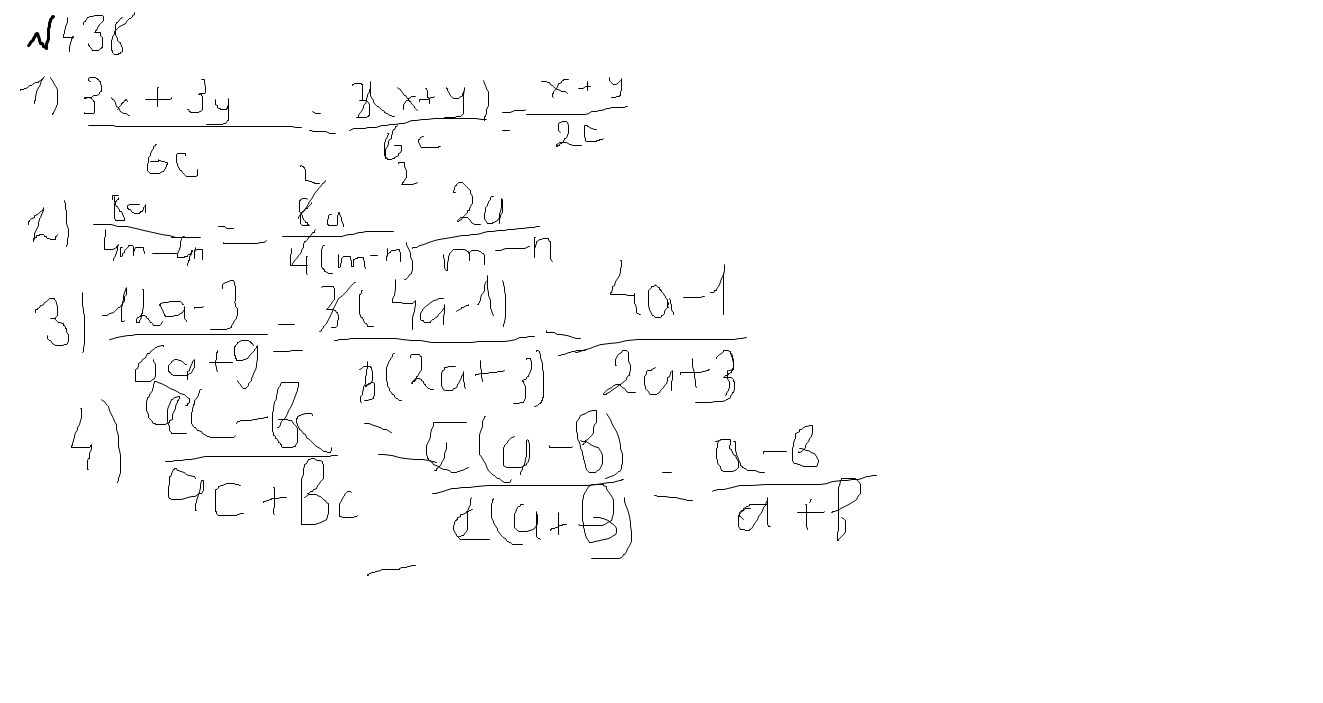 №438
1) (3x + 3y)/(6c) = 3(x+y)/(6c) = (x+y)/(2c)
2) 8a/(4m-4n) = 8a/(4(m-n)) 2a/(m-n)
3) (12a-3)/(6a+9) = 3(4a-1)/(3(2a+3)) = (4a-1)/(2a+3)
4) (ac-bc)/(ac+bc) = c(a-b)/(c(a+b)) = (a-b)/(a+b)